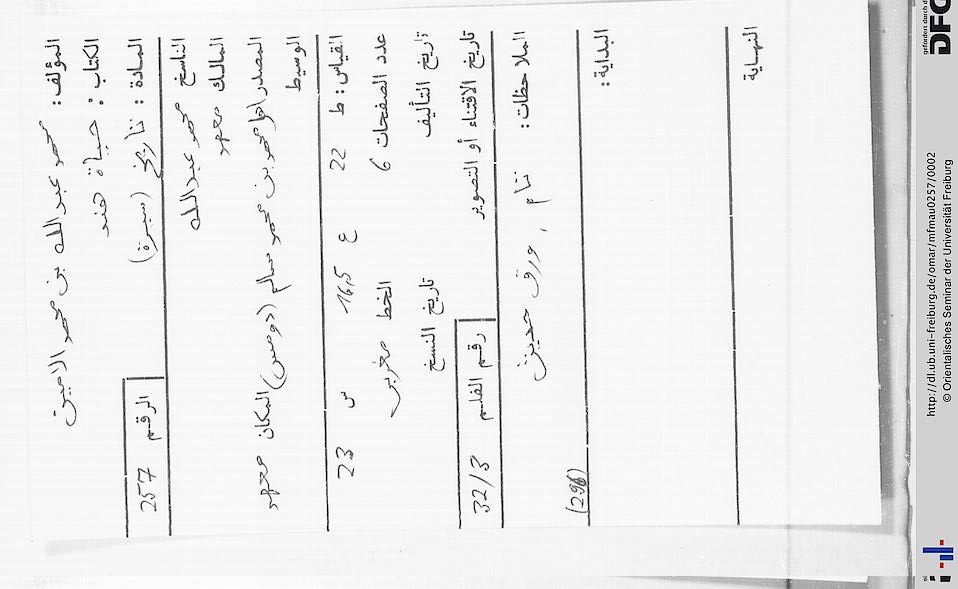 المؤلف: محمد عبد الله بن محمد الامين
الكتاب: حياة هند
المادة: تاريخ (سيرة) الرقم 257
الناسخ محمد عبد الله
المالك معهد
المصدر محمد بن محمد سالم (دومس) المكان معهد
الوسيط
القياس: ط 22 ع 16,5 س 23
عدد الصفحات 6 الخط مغربي
تاريخ التأليف تاريخ النسخ
تاريخ الاقتناء أو التصوير رقم الفلم 32/3
الملاحظات: تام, ورق حديث
(296)
البداية:
النهاية
http://dl.ub.uni-freiburg.de/omar/mfmau0257/0002
© Orientalisches Seminar der Universität Freiburg
gefördert durch d
DFG